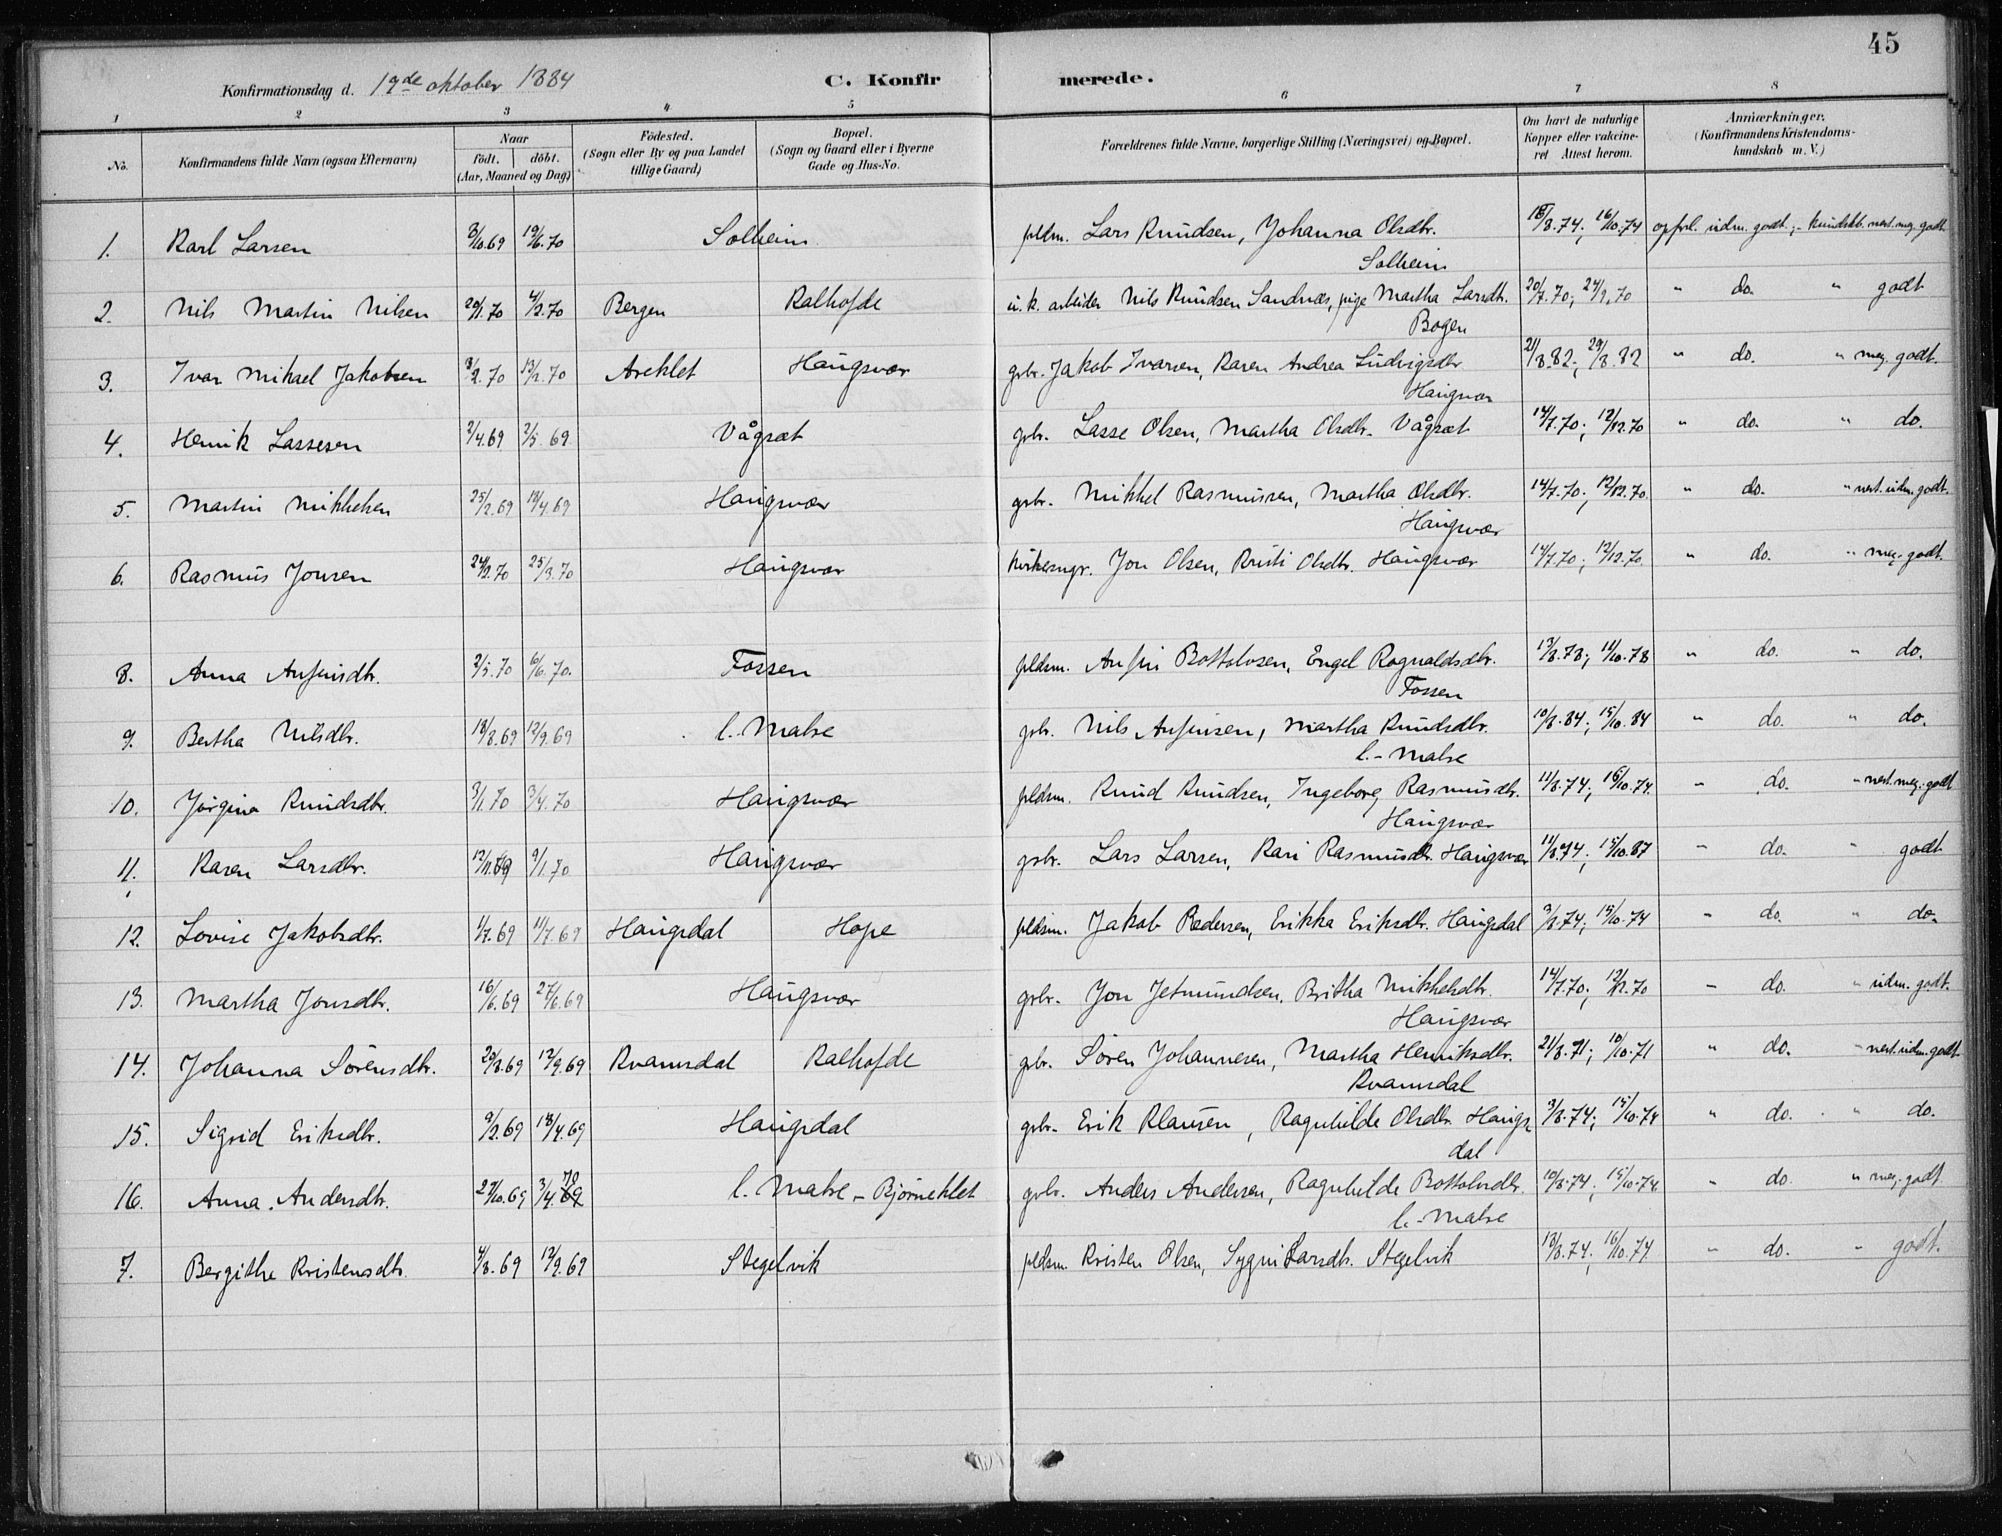 45
Konfirmationsdag d. 19de oktober 1884 C. Konfirmerede.
1 2 3 4 5 6 7 8
No. Konfirmandens fulde Navn (ogsaa Efternavn) Naar født. døbt. (Aar, Maaned og Dag) Fødested. (Sogn eller By og paa Landet tillige Gaard) Bopæl. (Sogn og Gaard eller i Byerne Gade og Hus-No. Forældrenes fulde Navne, borgerlige Stilling (Næringsvei) og Bopæl. Om havt de naturlige Kopper eller vakcineret Attest herom. Anmærkninger. (Konfirmandens Kristendomskundskab m. V.)
1. Karl Larsen 3/10.69 19/6.70 Solheim pldsm. Lars Knudsen, Johanna Olsdtr. Solheim 18/8.74; 16/10.74 opførl. udm. godt; - kundskb. nest. meg. godt
2. Nils Martin Nilsen 20/1.70 4/2.70 Bergen Kalhofde u.k. arbeider Nils Knudsen Sandnæs, pige Martha Larsdtr. Bogen 20/7.70; 24/9.70 " do. " godt
3. Ivar Mikael Jakobsen 3/2.70 13/2.70 Areklet Haugsvær gbr. Jakob Ivarsen, Karen Andrea Ludvigsdtr Haugsvær 21/8.82; 29/8.82 " do. " meg. godt.
4. Henrik Lassesen 2/4.69 2/5.69 Vågsæt gbr. Lasse Olsen, Martha Olsdtr. Vågsæt 14/7.70; 12/12.70 " do. " do.
5. Martin Mikkelsen 25/2.69 18/4.69 Haugsvær gbr. Mikkel Rasmussen, Martha Olsdtr. Haugsvær 14/7.70; 12/12.70 " do. " nest. udm. godt.
6. Rasmus Jonsen 24/2.70 25/3.70 Haugsvær kirkesngr. Jon Olsen, Kristi Olsdtr. Haugsvær 14/7.70; 12/12.70 " do. " meg. godt.
8. Anna Anfinsdtr. 2/5.70 6/6.70. Fossen pldsm. Anfin Bottolvsen, Engel Rognaldsdtr. Fossen 13/8.78; 11/10.78 " do. " do.
9. Bertha Nilsdtr. 18/8.69 12/9.69 l. Matre gbr. Nils Anfinsen, Martha Knudsdtr. l. - Matre 10/8.84; 15/10.84 " do. " do.
10. Jørgina Knudsdtr. 3/1.70 3/4.70 Haugsvær pldsm. Knud Knudsen, Ingeborg Rasmusdtr. Haugsvær 11/8.74; 16/10.74. " do. " nest. meg. godt
11. Karen Larsdtr. 12/11.69 9/1.70 Haugsvær gbr. Lars Larsen, Kari Rasmusdtr. Haugsvær 11/8.74; 15/10.87 " do. " godt
12. Lovise Jakobsdtr. 1/7.69 11/7.69 Haugsdal Hope pldsm. Jakob Pedersen, Erikka Eriksdtr. Haugsdal 3/8.74; 15/10.74 " do. " do.
13. Martha Jonsdtr. 16/6.69 27/6.69 Haugsvær gbr. Jon Jetmundsen, Britha Mikkelsdtr. Haugsvær 14/7.70; 12/12.70 " do. " udm. godt.
14. Johanna Sørensdtr. 29/8.69 12/9.69 Kvamsdal Kalhofde gbr. Søren Johannesen, Martha Henriksdtr. Kvamsdal 21/8.71; 10/10.71 " do. " nest. udm. godt.
15. Sigrid Eriksdtr. 9/2.69 18/4.69 Haugsdal gbr. Erik Klausen, Ragnhilde Olsdtr. Haugsdal 3/8.74; 15/10.74 " do. " do.
16. Anna Andersdtr. 27/10.69 3/4.69 70 l. Matre - Bjørneklet gbr. Anders Andersen, Ragnhilde Bottolvsdtr. l. - Matre 10/8.74; 15/10.74. " do. " meg. godt.
7. Bergithe Kristensdtr. 4/8.69 12/9.69 Stegelvik pldsm. Kristen Olsen, Sygni Larsdtr. Stegelvik 18/8.74; 16/10.74 " do. " godt.